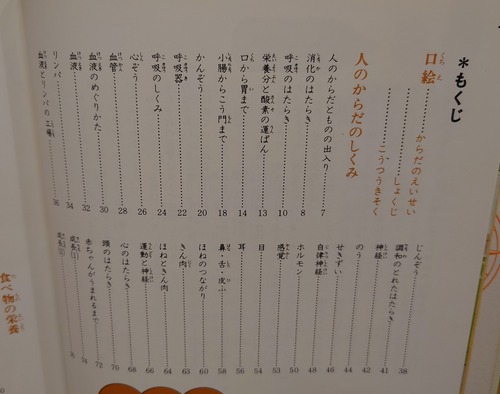 *もくじ
口絵
からだのえいせい
しょくじ
こうつうきそく
人のからだのしくみ
人のからだとものの出入り 7
消化のはたらき 8
呼吸のはたらき 10
栄養分と酸素の運ぱん 13
口から胃まで 14
小腸からこう門まで 18
かんぞう 20
呼吸器 22
呼吸のしくみ 24
心ぞう 26
血管 28
血液 30
血液のめぐりかた 32
リンパ 34
血液とリンパの工場 36
じんぞう 38
調和のとれたはたらき 41
神経 42
のう 44
せきずい 46
自律神経 48
ホルモン 50
感覚 53
目 54
耳 56
鼻・舌・皮ふ 58
ほねのつながり 60
きん肉 63
ほねときん肉 64
運動と神経 66
心のはたらき 68
頭のはたらき 70
赤ちゃんがうまれるまで 72
成長(1) 74
成長(2)
食べ物の栄養